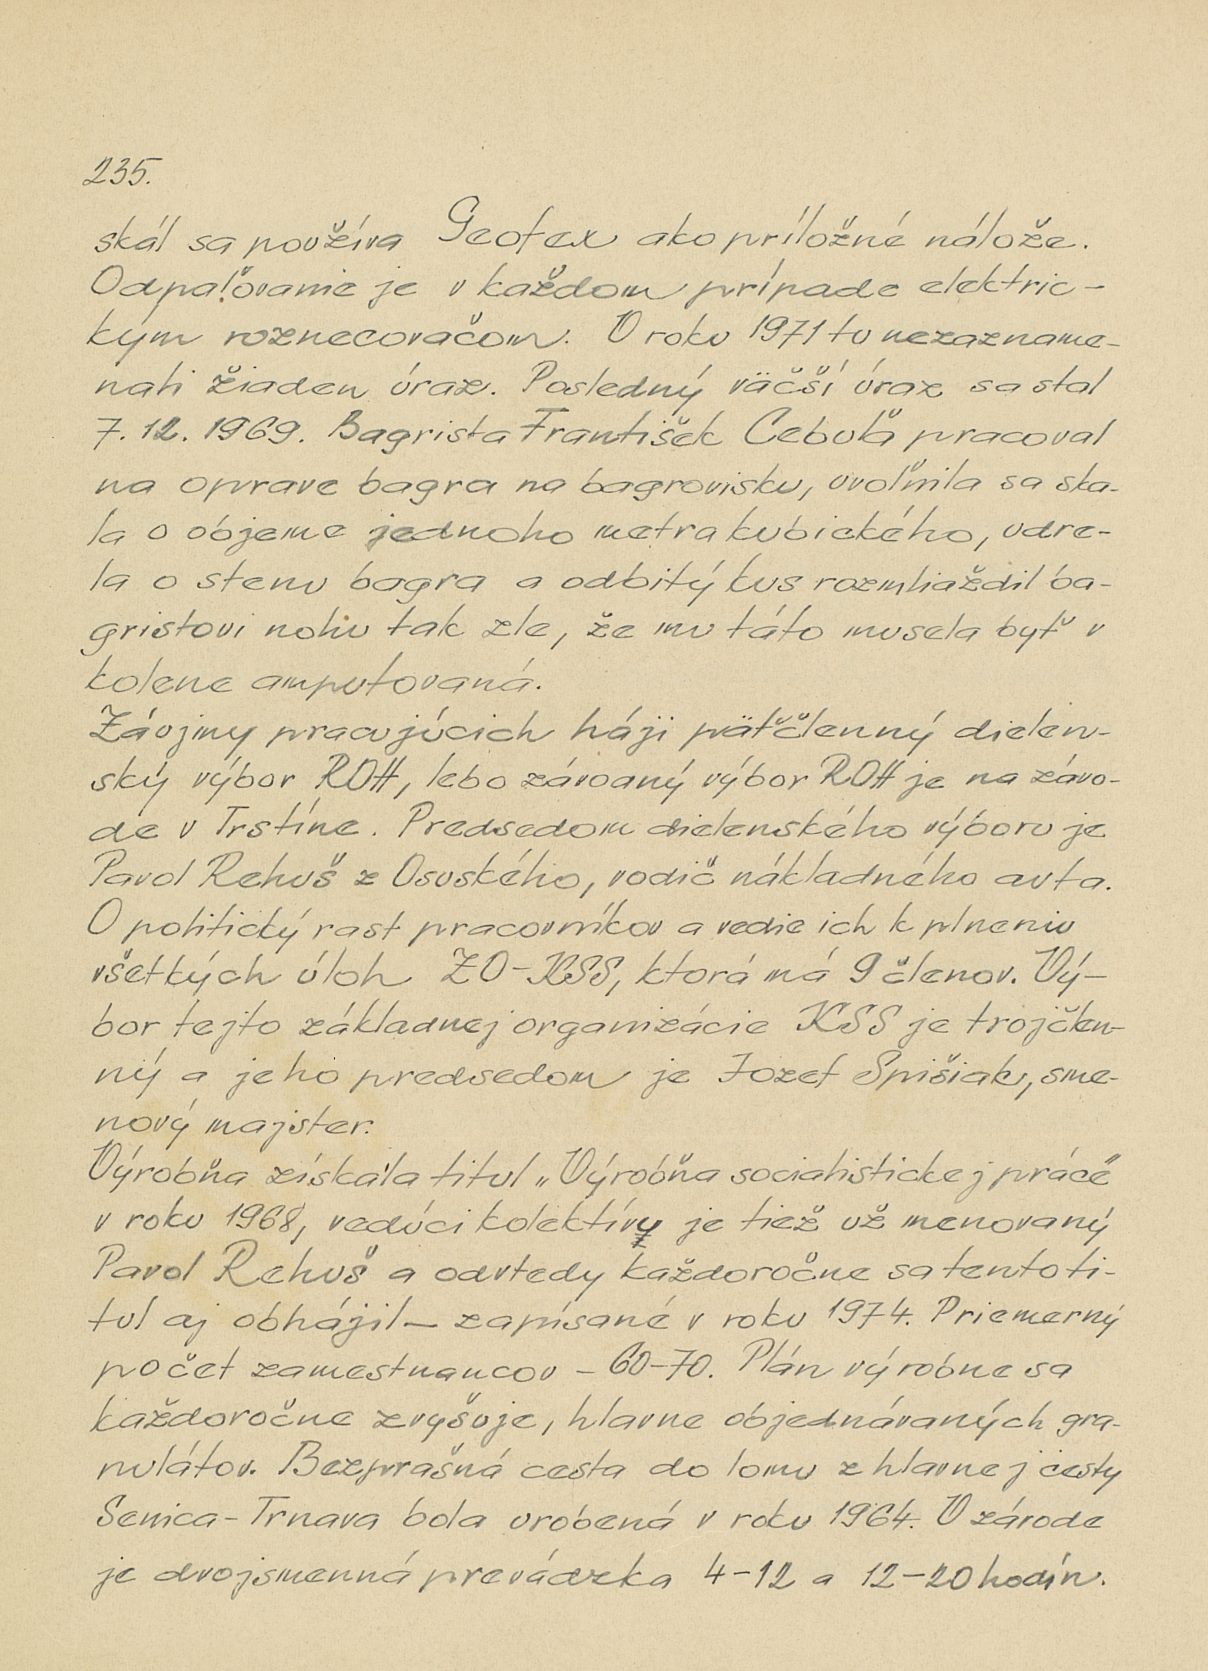 235.
skál sa používa Geofex ako príložné nálože.
Odpaľovanie je v každom prípade elektric-
kým roznecovačom. V roku 1971 tu nezazname-
nali žiaden úraz. Posledný väčší úraz sa stal
7. 12. 1969. Bagrista František Cebuľa pracoval
na oprave bagra na bagrovisku, uvoľnila sa ska-
la o objeme jednoho metra kubického, udre-
la o stenu bagra a odbitý kus rozmliaždil ba-
gristovi nohu tak zle, že mu táto musela byť v
kolene amputovaná.
Záujmy pracujúcich háji päťčlenný dielen-
ský výbor ROH, lebo závodný výbor ROH je na závo-
de v Trstíne. Predsedom dielenského výboru je
Pavol Rehuš z Osuského, vodič nákladného auta.
O politický rast pracovníkov a vedie ich k plneniu
všetkých úloh ZO-KSS, ktorá má 9 členov. Vý-
bor tejto základnej organizácie KSS je trojčlen-
ný a jeho predsedom je Jozef Spišiak, sme-
nový majster.
Výrobňa získala titul „Výrobňa socialistickej práce"
v roku 1968, vedúci kolektívy je tiež už menovaný
Pavol Rehuš a odvtedy každoročne sa tento ti-
tul aj obhájil – zapísané v roku 1974. Priemerný
počet zamestnancov – 60-70. Plán výrobne sa
každoročne zvyšuje, hlavne objednávaných gra-
nulátov. Bezprašná cesta do lomu z hlavnej cesty
Senica-Trnava bola urobená v roku 1964. V závode
je dvojsmenná prevádzka 4-12 a 12-20 hodín.